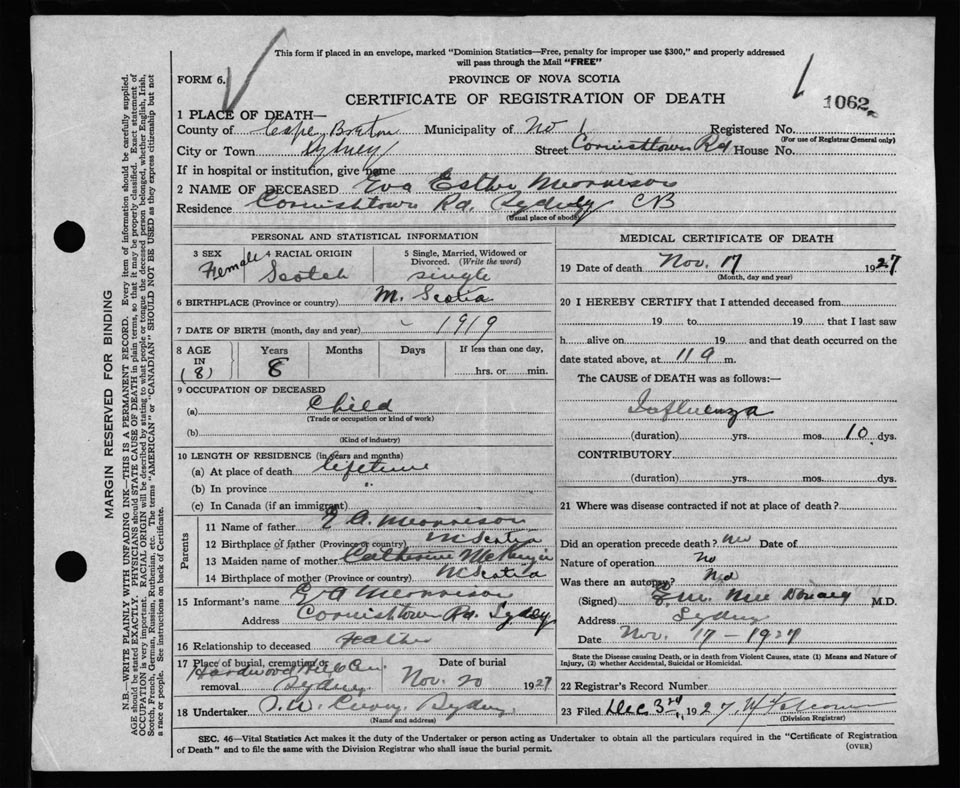 This form if placed in an envelope, marked "Dominion Statistics—Free, penalty for improper use $300," and properly addressed
will pass through the Mail "FREE"
FORM 6.
PROVINCE OF NOVA SCOTIA
CERTIFICATE OF REGISTRATION OF DEATH
1062
1 PLACE OF DEATH—
County of Cape Breton Municipality of No 1 Registered No.
(For use of Registrar General only)
City or Town Sydney Street Cornishtown Rd House No.
If in hospital or institution, give name
2 NAME OF DECEASED Eva Esther Morrison
Residence Cornishtown Rd. Sydney CB
(Usual place of abode)
PERSONAL AND STATISTICAL INFORMATION
3 SEX Female
4 RACIAL ORIGIN Scotch
5 Single, Married, Widowed or Divorced. (Write the word) single
6 BIRTHPLACE (Province or country) N. Scotia
7 DATE OF BIRTH (month, day and year) 1919
8 AGE IN (8) Years 8 Months Days If less than one day, hrs. or min.
9 OCCUPATION OF DECEASED
(a) Child
(Trade or occupation or kind of work)
(b)
(Kind of industry)
10 LENGTH OF RESIDENCE (in years and months)
(a) At place of death lifetime
(b) In province "
(c) In Canada (if an immigrant)
Parents
11 Name of father A. Morrison
12 Birthplace of father (Province or country) N Scotia
13 Maiden name of mother Catherine McKenzie
14 Birthplace of mother (Province or country) N Scotia
15 Informant's name A Morrison
Address Cornishtown Rd. Sydney
16 Relationship to deceased Father
17 Place of burial, cremation or removal Hardwood Hill Cem. Sydney
Date of burial Nov. 20 1927
18 Undertaker Sydney
(Name and address)
MEDICAL CERTIFICATE OF DEATH
19 Date of death Nov. 17 1927
(Month, day and year)
20 I HEREBY CERTIFY that I attended deceased from
19 to 19 that I last saw
h alive on 19 and that death occurred on the
date stated above, at 11 a m.
The CAUSE OF DEATH was as follows:—
Influenza
(duration) yrs. mos. 10 dys.
CONTRIBUTORY
(duration) yrs. mos. dys.
21 Where was disease contracted if not at place of death?
Did an operation precede death? no Date of
Nature of operation No
Was there an autopsy? No
(Signed) M.D.
Address Sydney
Date Nov. 17 - 1927
State the Disease causing Death, or in death from Violent Causes, state (1) Means and Nature of
Injury, (2) whether Accidental, Suicidal or Homicidal.
22 Registrar's Record Number
23 Filed Dec 3rd, 1927.
(Division Registrar)
SEC. 46—Vital Statistics Act makes it the duty of the Undertaker or person acting as Undertaker to obtain all the particulars required in the "Certificate of Registration
of Death" and to file the same with the Division Registrar who shall issue the burial permit.
(OVER)
MARGIN RESERVED FOR BINDING
N.B.—WRITE PLAINLY WITH UNFADING INK—THIS IS A PERMANENT RECORD. Every item of information should be carefully supplied.
AGE should be stated EXACTLY. PHYSICIANS should STATE CAUSE OF DEATH in plain terms, so that it may be properly classified. Exact statement of
OCCUPATION is very important. RACIAL ORIGIN will be described by stating to what people or tongue the deceased person belonged, whether English, Irish,
Scotch, French, German, Russian, Ruthenian, etc. The terms "AMERICAN" or "CANADIAN" SHOULD NOT BE USED as they express citizenship but not
a race or people. See instructions on back of Certificate.